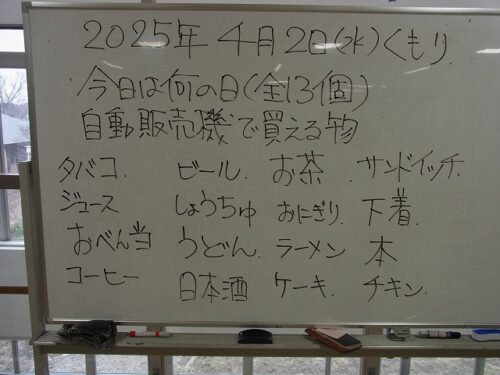 2025年4月2日(水)くもり.
今日は何の日(全13個)
自動販売機で買える物
タバコ. ビール. お茶. サンドイッチ.
ジュース しょうちゅ おにぎり. 下着.
おべん当 うどん. ラーメン. 本
コーヒー 日本酒 ケーキ. チキン.